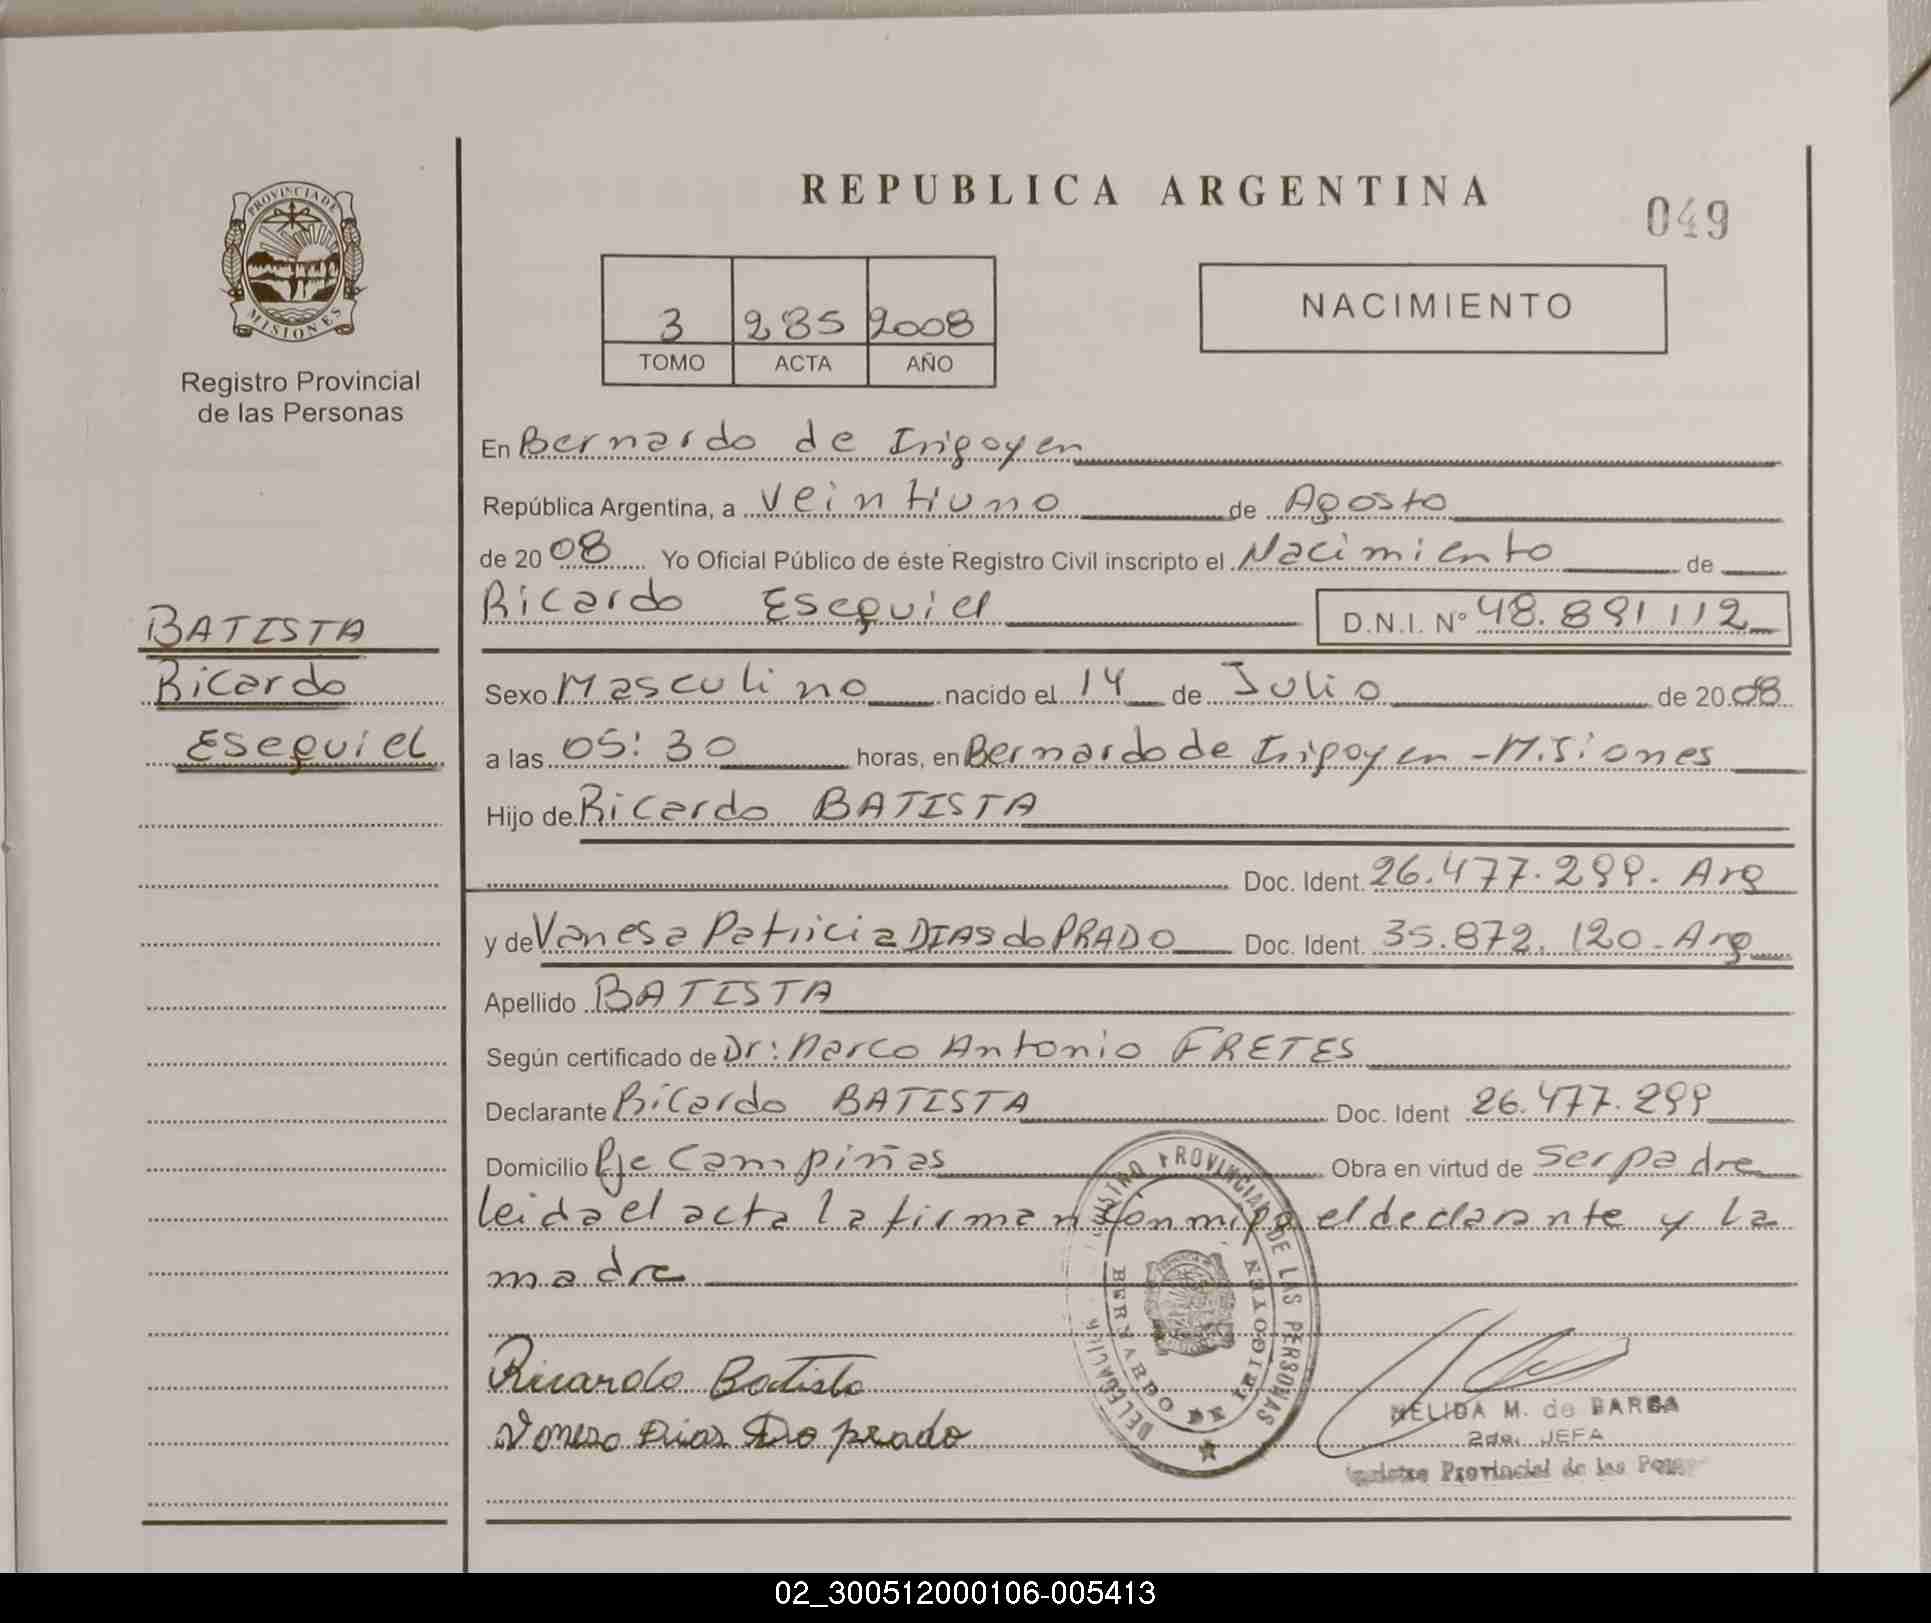 REPUBLICA ARGENTINA
049
PROVINCIA DE
MISIONES
Registro Provincial
de las Personas
3 285 2008
TOMO ACTA AÑO
NACIMIENTO
En Bernardo de Irigoyen
República Argentina, a veintiuno de Agosto
de 2008 Yo Oficial Público de éste Registro Civil inscripto el Nacimiento de
Ricardo Esequiel D.N.I. Nº 48.891112
BATISTA
Ricardo
Esequiel
Sexo Masculino nacido el 14 de Julio de 2008
a las 05:30 horas, en Bernardo de Irigoyen - Misiones
Hijo de Ricardo BATISTA
Doc. Ident. 26.477.299. Arg
y de Vanesa Patricia DIAS do PRADO Doc. Ident. 35.872.120. Arg
Apellido BATISTA
Según certificado de Dr: Marco Antonio FRETES
Declarante Ricardo BATISTA Doc. Ident 26.477.299
Domicilio Pje Campiñas Obra en virtud de Ser padre
leida el acta la firman conmigo el declarante y la
madre
REGISTRO PROVINCIAL DE LAS PERSONAS
DELEGACION
BERNARDO DE IRIGOYEN
Ricardo Batista
Vanesa Dias Do prado
NELIDA M. de BARGA
2da. JEFA
Registro Provincial de las Personas
02_300512000106-005413